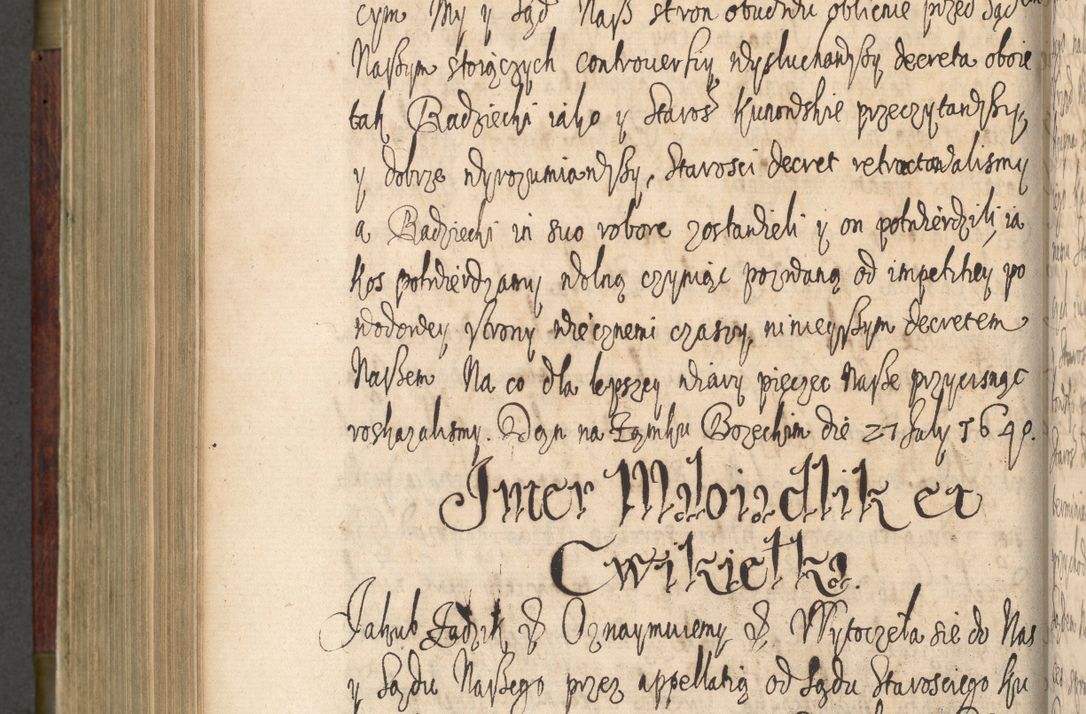 cym My y Sąd Nasz stron obudwu oblicnie przed Sądem
Naszym stoiączych controuersiy wysłuchawszy decreta oboie
tak Radziecki iako y Staroś Kunowskie przeczytawszy,
y dobrze wyrozumiawszy, Starosci decret retractowalismy
a Radziecki in suo robore zostawieli y on potwierdzili, ia
kos potwierdzamy wolną czyniąc pozwaną od impetitiey po
wodowey strony wiecznemi czasy, ninieyszym decretem
Naszem Na co dla lepszey wiary pięczęc Nasze przycisnąc
roskazalismy. Dzyn na Zamku Bozęckim die 27 July 1640.
Inter Miłoiadlik et
Cwikiełka.
Jakub Zadzik & Oznaymuiemy & Wytoczeła się do Nas
y Sądu Naszego przez appellatią od Sądu Starosciego Ku